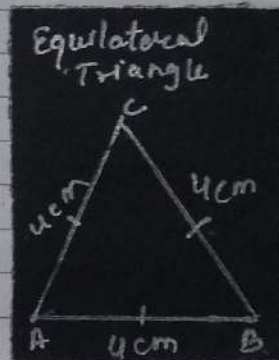 Equilateral
Triangle
C
4cm
4cm
A
4cm
B